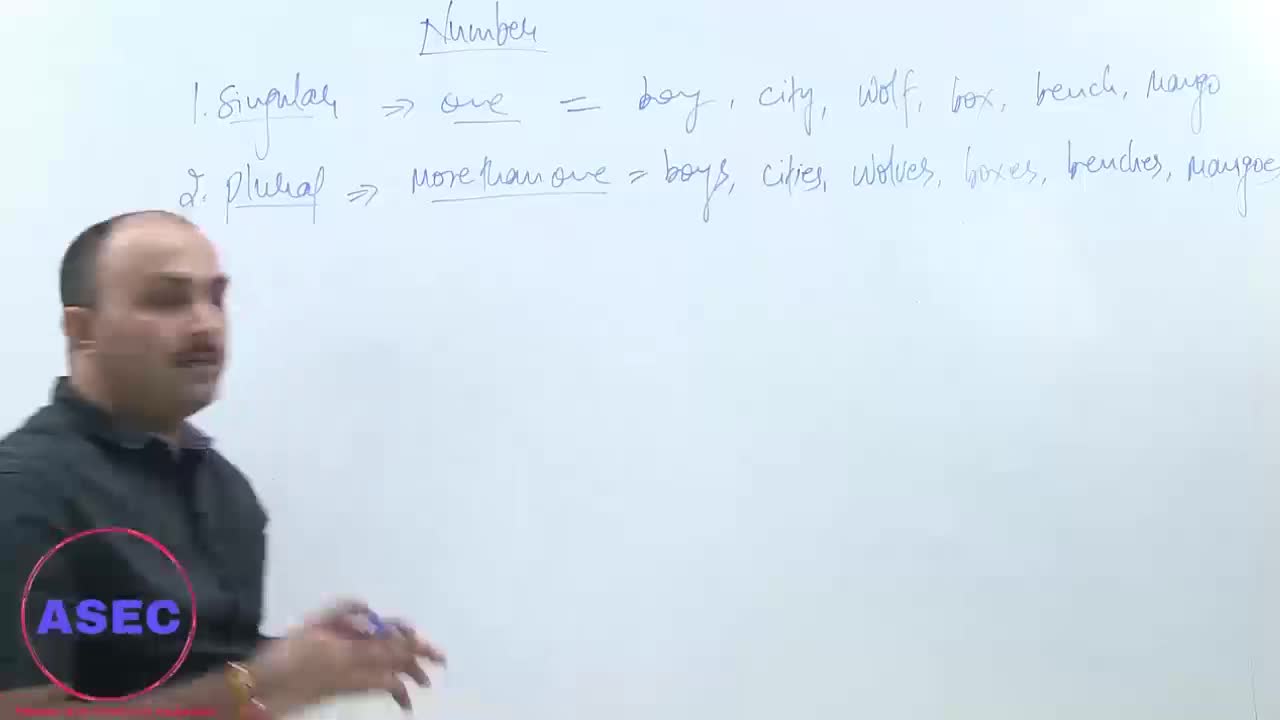 Number
1. Singular ⇒ one = boy, city, wolf, box, bench, Mango
2. Plural ⇒ More than one = boys, cities, wolves, boxes, benches, Mangoes
ASEC